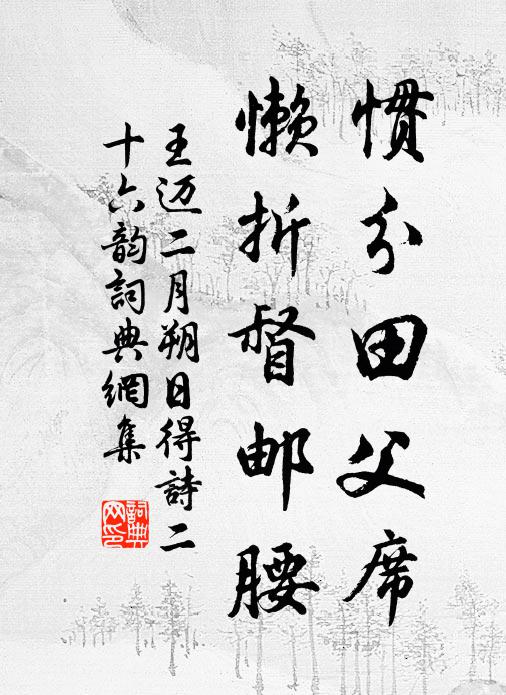 惯分田父席
懒折督邮腰
王迈二月朔日得詩二
十六韵詞典網集
詞典
网印